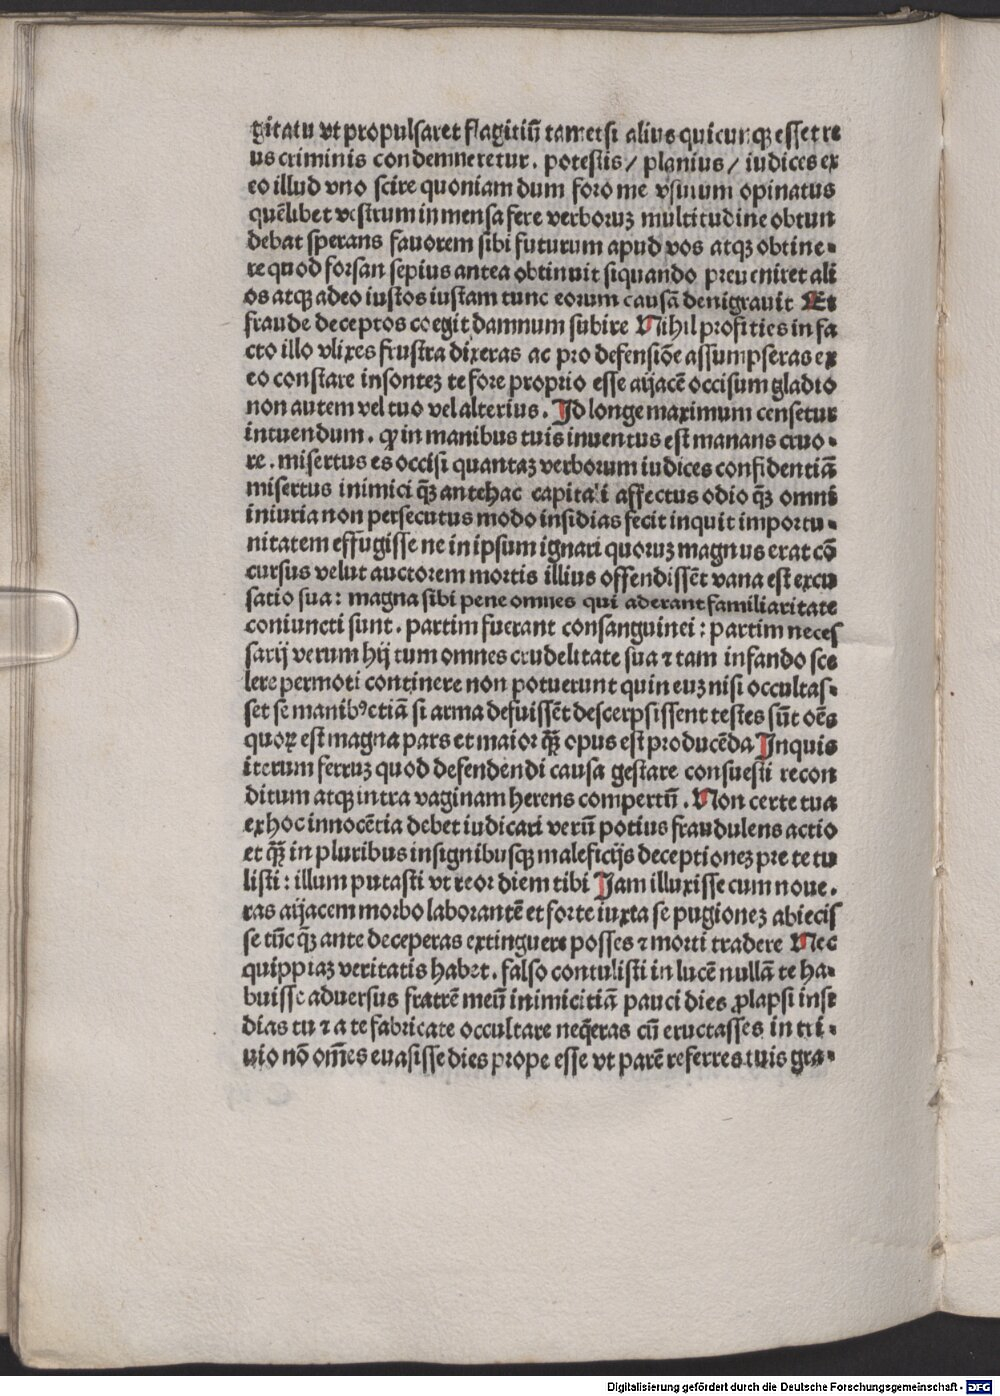 gitatu vt propulsaret flagitiū tametsi alius quicunqꝫ esset re
us criminis condemneretur. potestis / planius / iudices ex
eo illud vno scire quoniam dum foro me vsurum opinatus
quēlibet vestrum inmensa fere verboruꝫ multitudine obtun
debat sperans fauorem sibi futurum apud vos atqꝫ obtine⸗
re quod forsan sepius antea obtinuit siquando preueniret ali
os atqꝫ adeo iustos iustam tunc eorum causā denigrauit Et
fraude deceptos coegit damnum subire Nihil profities in fa
cto illo vlixes frustra dixeras ac pro defensiōe assumpseras ex
eo constare insonteꝫ te fore proprio esse aijacē occisum gladio
non autem vel tuo vel alterius. Id longe maximum censetur
intuendum. ꝙ in manibus tuis inuentus est manans cruo⸗
re. misertus es occisi quantaꝫ verborum iudices confidentiā
misertus inimici q̄ꝫ antehac capitali affectus odio q̄ꝫ omni
iniuria non persecutus modo insidias fecit inquit importu⸗
nitatem effugisse ne in ipsum ignari quoruꝫ magnus erat cō
cursus velut auctorem mortis illius offendissēt vana est excu
satio sua: magna sibi pene omnes qui aderant familiaritate
coniuncti sunt. partim fuerant consanguinei: partim neces
sarij verum hij tum omnes crudelitate sua ⁊ tam infando sce
lere permoti continere non potuerunt quin euꝫ nisi occultas⸗
set se manibꝰ etiā si arma defuissēt descerpsissent testes sūt oēs
quoꝝ est magna pars et maior q̄ꝫ opus est producēda Inquis
iterum ferruꝫ quod defendendi causa gestare consuesti recon
ditum atqꝫ intra vaginam herens compertū. Non certe tua
ex hoc innocētia debet iudicari verū potius fraudulens actio
et q̄ꝫ in pluribus insignibusqꝫ maleficijs deceptioneꝫ pre te tu
listi: illum putasti vt reor diem tibi Jam illuxisse cum noue⸗
ras aijacem morbo laborantē et forte iuxta se pugioneꝫ abiecis
se tūc q̄ꝫ ante deceperas extinguere posses ⁊ morti tradere Nec
quippiaꝫ veritatis habet. falso contulisti in lucē nullā te ha⸗
buisse aduersus fratrē meū inimicitiā pauci dies ꝓlapsi insi
dias tu ⁊ a te fabricate occultare neq̄eras cū eructasses in tri⸗
uio nō om̄es euasisse dies prope esse vt parē referres tuis gra⸗
Digitalisierung gefördert durch die Deutsche Forschungsgemeinschaft - DFG